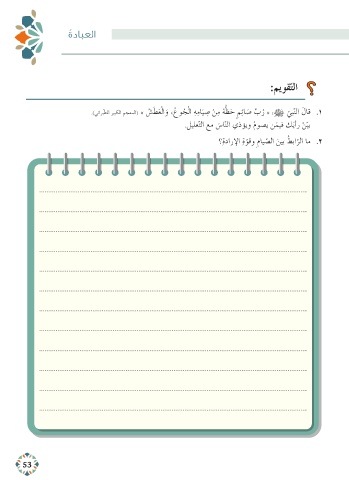 العبادة
التَّقويم:
١. قالَ النَّبيّ ﷺ: « رُبَّ صَائِمٍ حَظُّهُ مِنْ صِيَامِهِ الْجُوعُ، وَالْعَطَشُ » (المعجم الكبير للطبراني).
بَيّنْ رأيكَ فيمَن يصومُ ويؤذي النّاسَ مع التّعليل.
٢. ما الرّابطُ بينَ الصِّيامِ وقوّةِ الإرادةِ؟
53